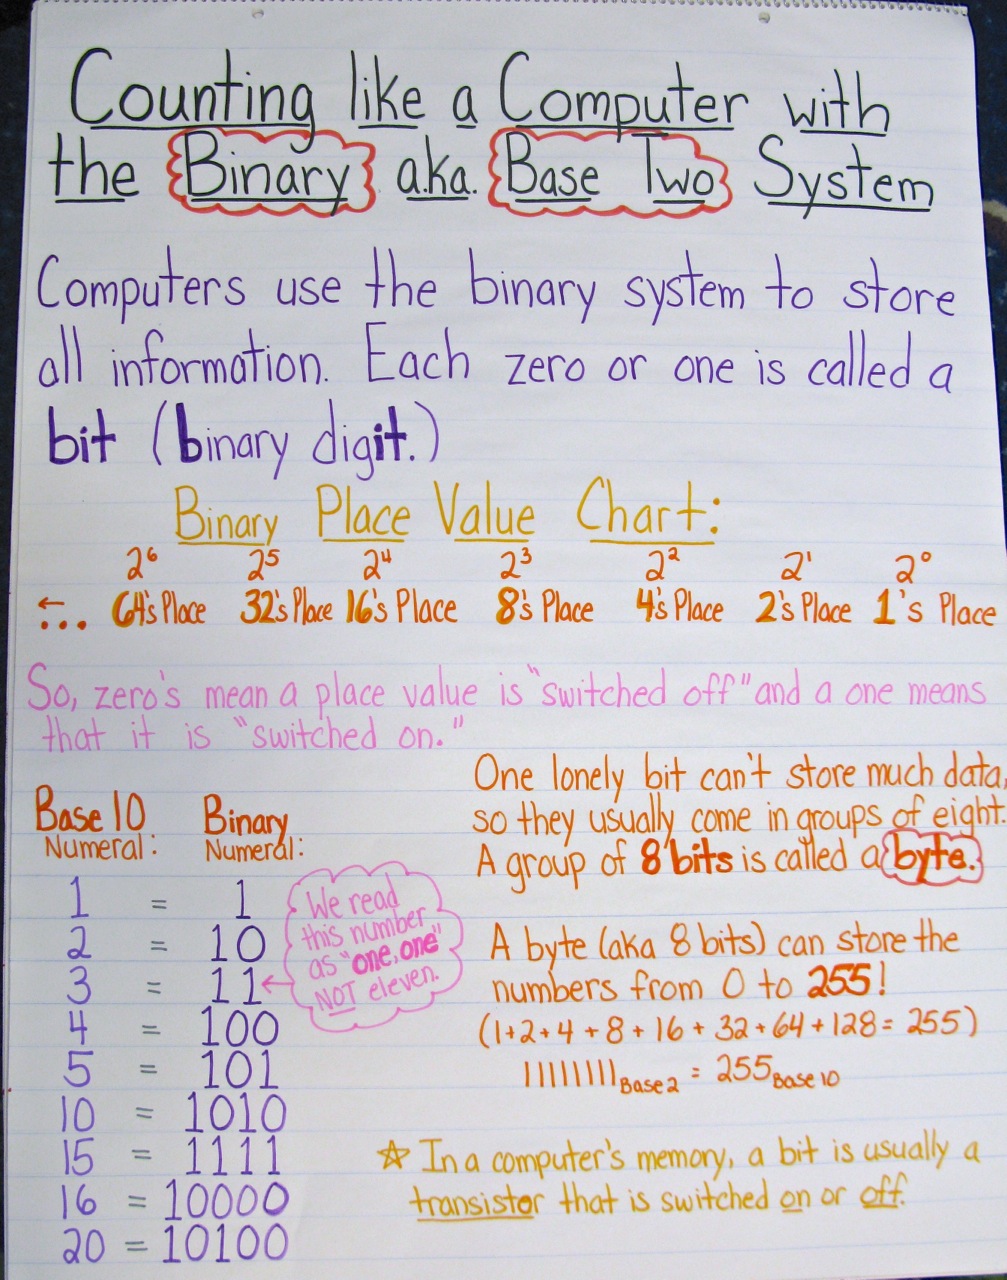 Counting like a Computer with
the Binary a.k.a. Base Two System
Computers use the binary system to store
all information. Each zero or one is called a
bit (binary digit.)
Binary Place Value Chart:
2⁶ 2⁵ 2⁴ 2³ 2² 2¹ 2⁰
←... 64's Place 32's Place 16's Place 8's Place 4's Place 2's Place 1's Place
So, zero's mean a place value is "switched off" and a one means
that it is "switched on."
Base 10 Binary
Numeral: Numeral:
1 = 1
2 = 10
3 = 11
4 = 100
5 = 101
10 = 1010
15 = 1111
16 = 10000
20 = 10100
We read
this number
as "one, one"
NOT eleven.
One lonely bit can't store much data,
so they usually come in groups of eight.
A group of 8 bits is called a byte.
A byte (aka 8 bits) can store the
numbers from 0 to 255!
(1+2+4+8+16+32+64+128=255)
11111111 Base 2 = 255 Base 10
☆ In a computer's memory, a bit is usually a
transistor that is switched on or off.